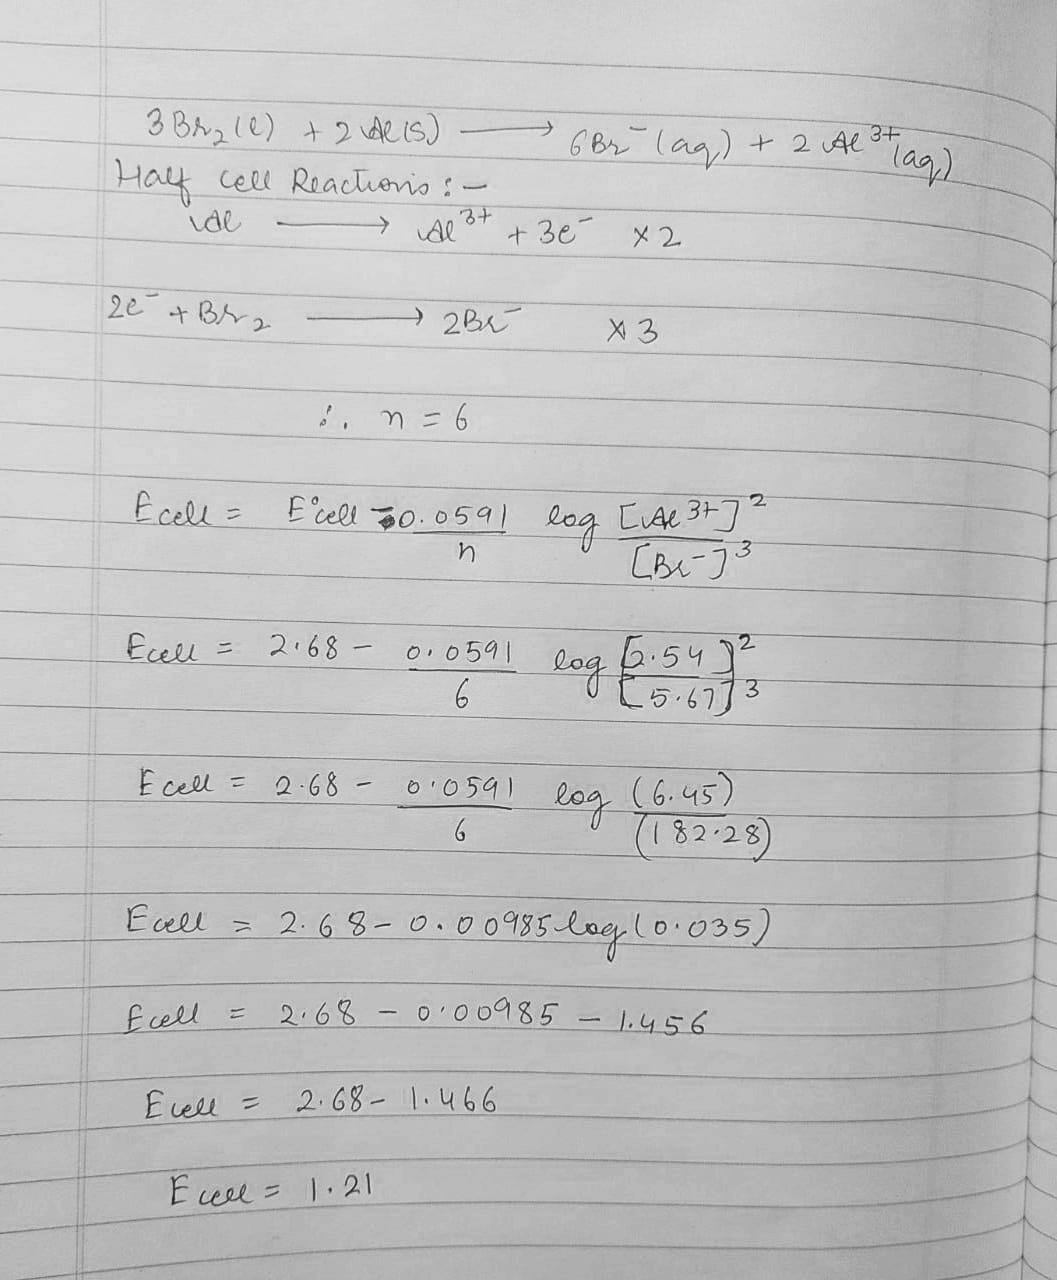 3Br₂(l) + 2Al(s) ⟶ 6Br⁻(aq) + 2Al³⁺(aq)
Half cell Reactions :-
Al ⟶ Al³⁺ + 3e⁻ ×2
2e⁻ + Br₂ ⟶ 2Br⁻ ×3
∴ n = 6
Ecell = E°cell - 0.0591/n log [Al³⁺]²/[Br⁻]³
Ecell = 2.68 - 0.0591/6 log [2.54]²/[5.67]³
Ecell = 2.68 - 0.0591/6 log (6.45)/(182.28)
Ecell = 2.68 - 0.00985 log(0.035)
Ecell = 2.68 - 0.00985 - 1.456
Ecell = 2.68 - 1.466
Ecell = 1.21